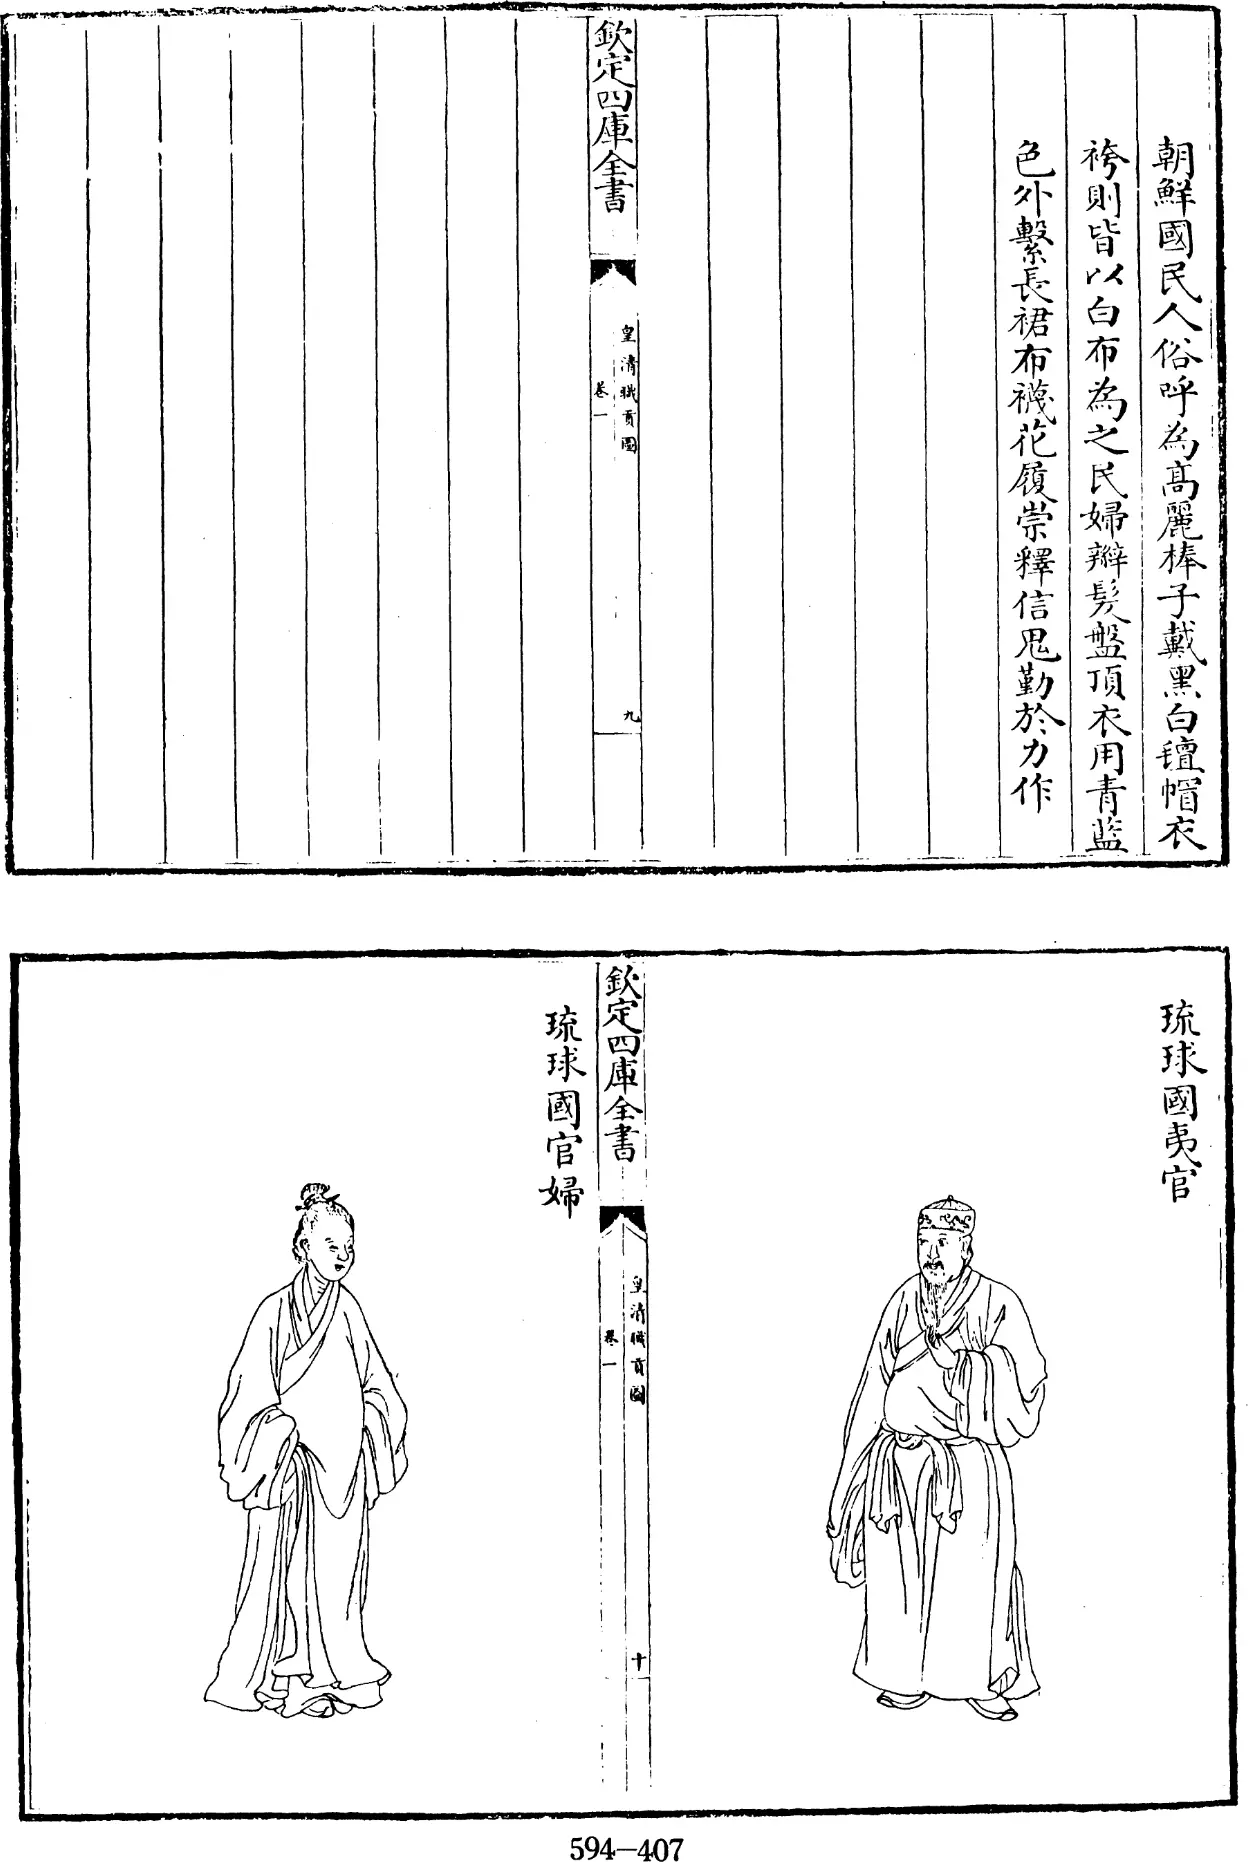 朝鮮國民人俗呼為高麗棒子戴黑白氊帽衣
袴則皆以白布為之民婦辮髮盤頂衣用青藍
色外繫長裙布襪花履崇釋信鬼勤於力作
欽定四庫全書
皇清職貢圖
卷一
九
琉球國夷官
欽定四庫全書
皇清職貢圖
卷一
十
琉球國官婦
594—407